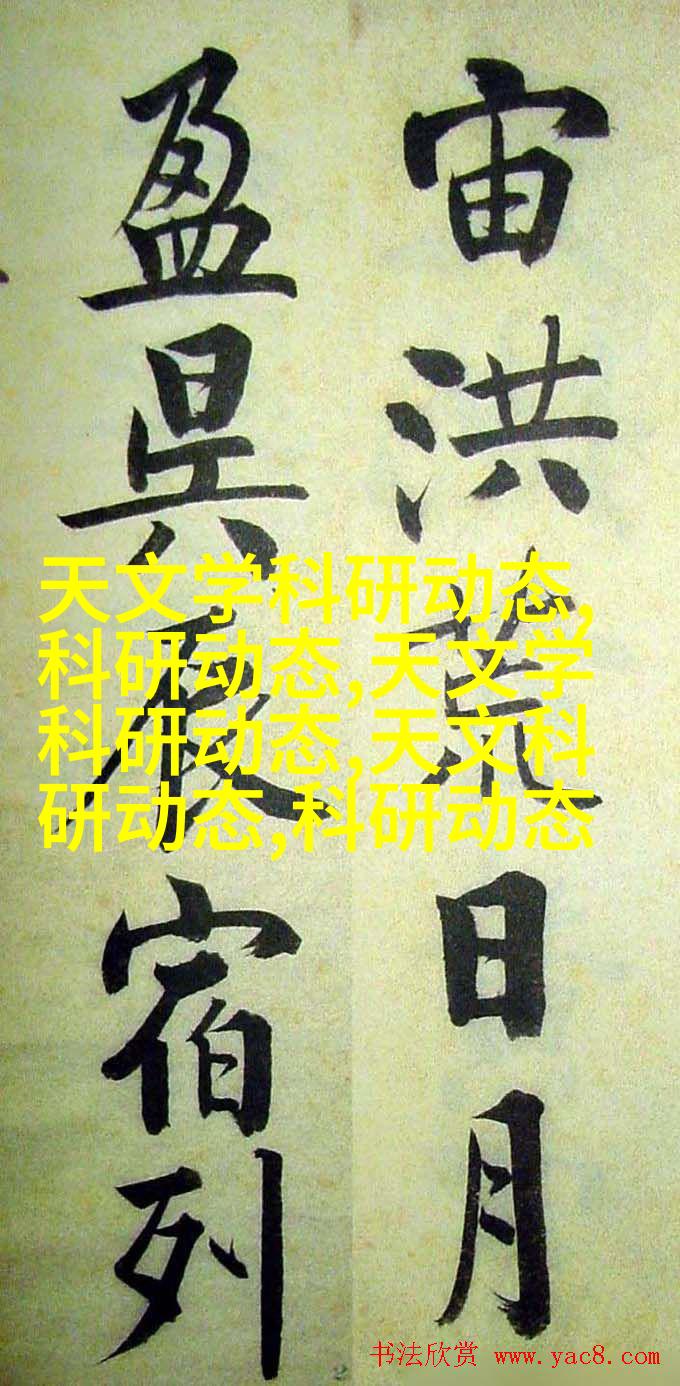 宙洪荒日月
盈昃辰宿列
天文学科研动态,
科研动态,天文学
科研动态,天文科
研动态,科研动态
书法欣赏 www.yac8.com